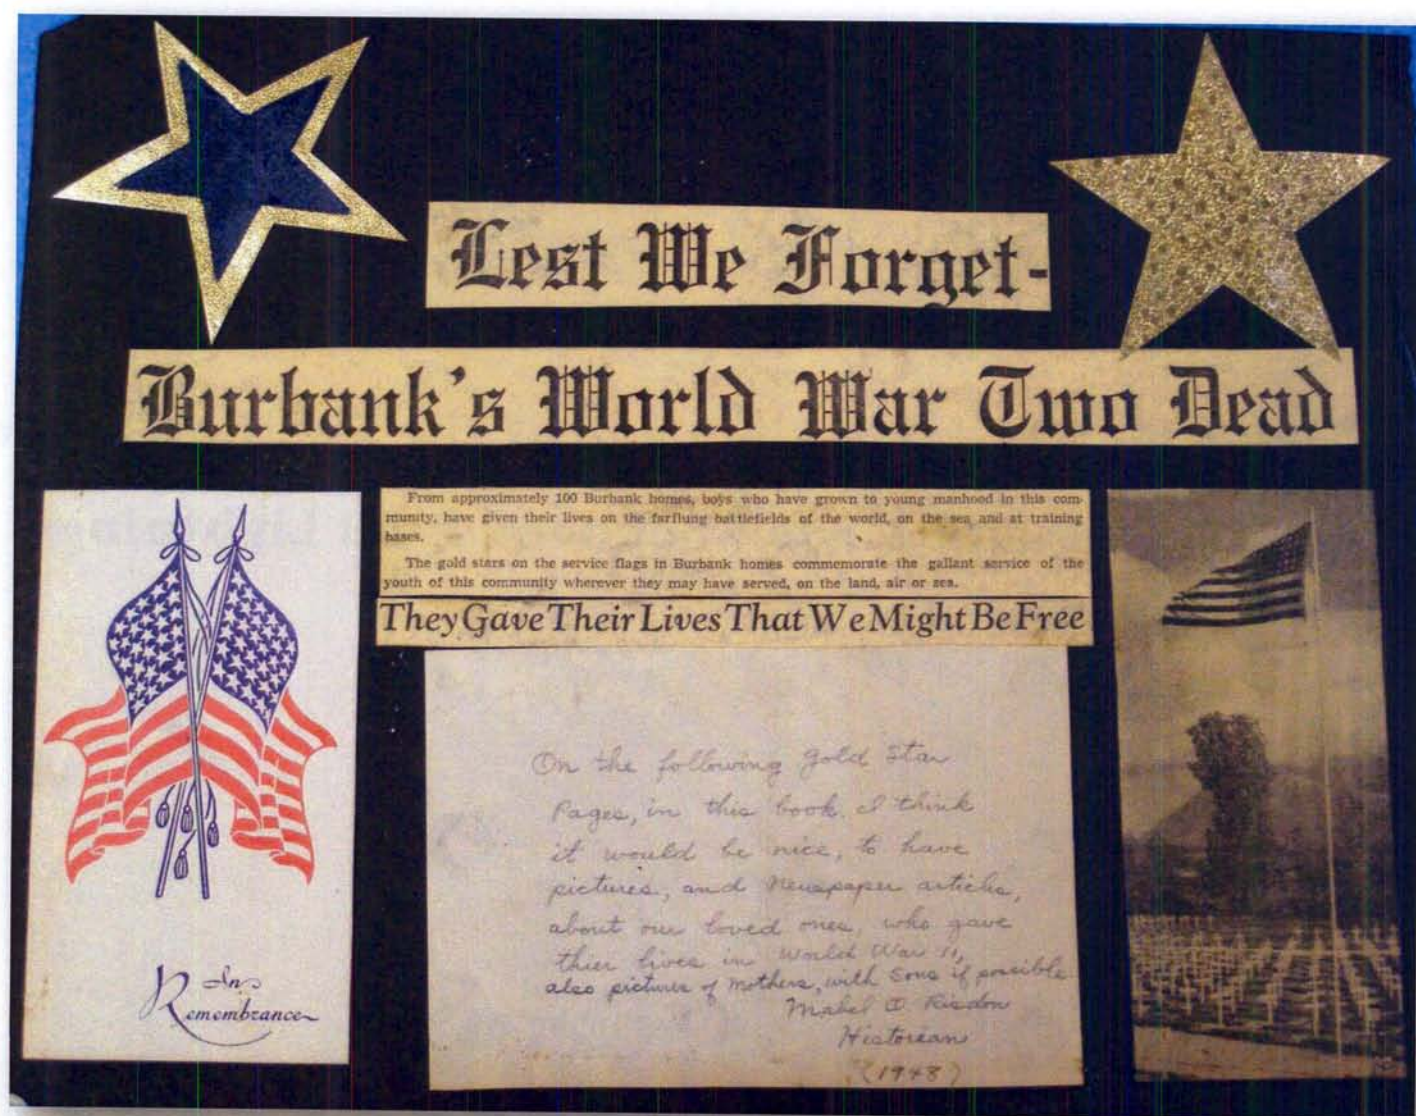 Lest We Forget-
Burbank's World War Two Dead
From approximately 100 Burbank homes, boys who have grown to young manhood in this com-
munity, have given their lives on the farflung battlefields of the world, on the sea and at training
bases.
The gold stars on the service flags in Burbank homes commemorate the gallant service of the
youth of this community wherever they may have served, on the land, air or sea.
They Gave Their Lives That We Might Be Free
On the following Gold Star
Pages, in this book. I think
it would be nice, to have
pictures, and Newspaper articles,
about our loved ones, who gave
thier lives in World War 11,
also pictures of mothers, with Sons if possible
Mabel D. Risdon
Historian
(1948)
In
Remembrance